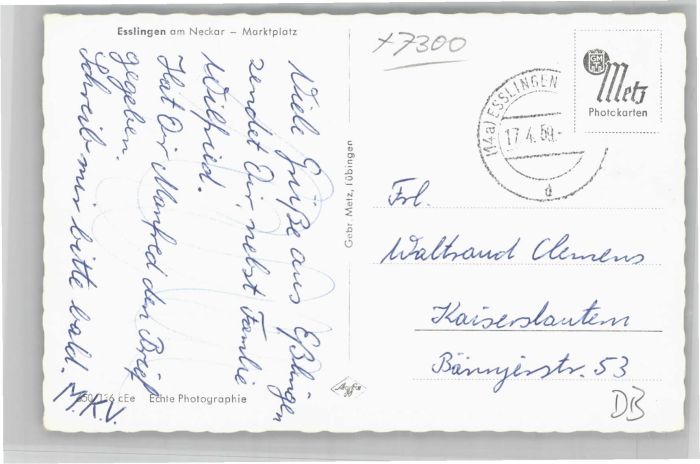 Esslingen am Neckar – Marktplatz
Viele Grüße aus Eßlingen
sendet Dir, nebst Familie
Wilfried.
Hat Dir Manfred den Brief
gegeben.
Schreib mir bitte bald.
M.K.V.
350/126 cEe Echte Photographie
Gebr. Metz, Tübingen
Agfa
x7300
(14a) ESSLINGEN
17.4.59.-
d
GMT
Metz
Photokarten
Frl.
Waltraud Clemens
Kaiserslautern
Bännjerstr. 53
DB